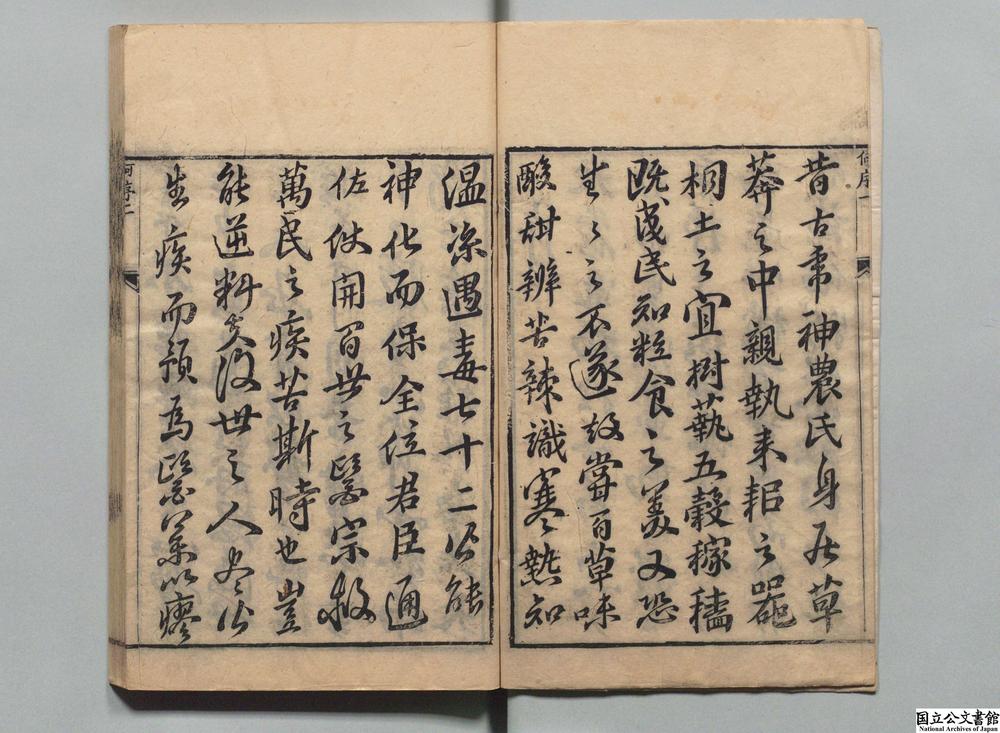 何序一
昔古帝神農氏身居草
莽之中親執耒耜之器
相土之宜樹蓺五穀稼穡
既成民知粒食之美又恐
生〻之不遂故嘗百草味
酸甜辨苦辣識寒熱知
溫涼遇毒七十二公能
神化而保全位君臣通
佐使開百世之毉宗救
萬民之疾苦斯時也豈
能逆料矣後世之人
生疾而預為毉藥以瘳
何序二
国立公文書館
National Archives of Japan